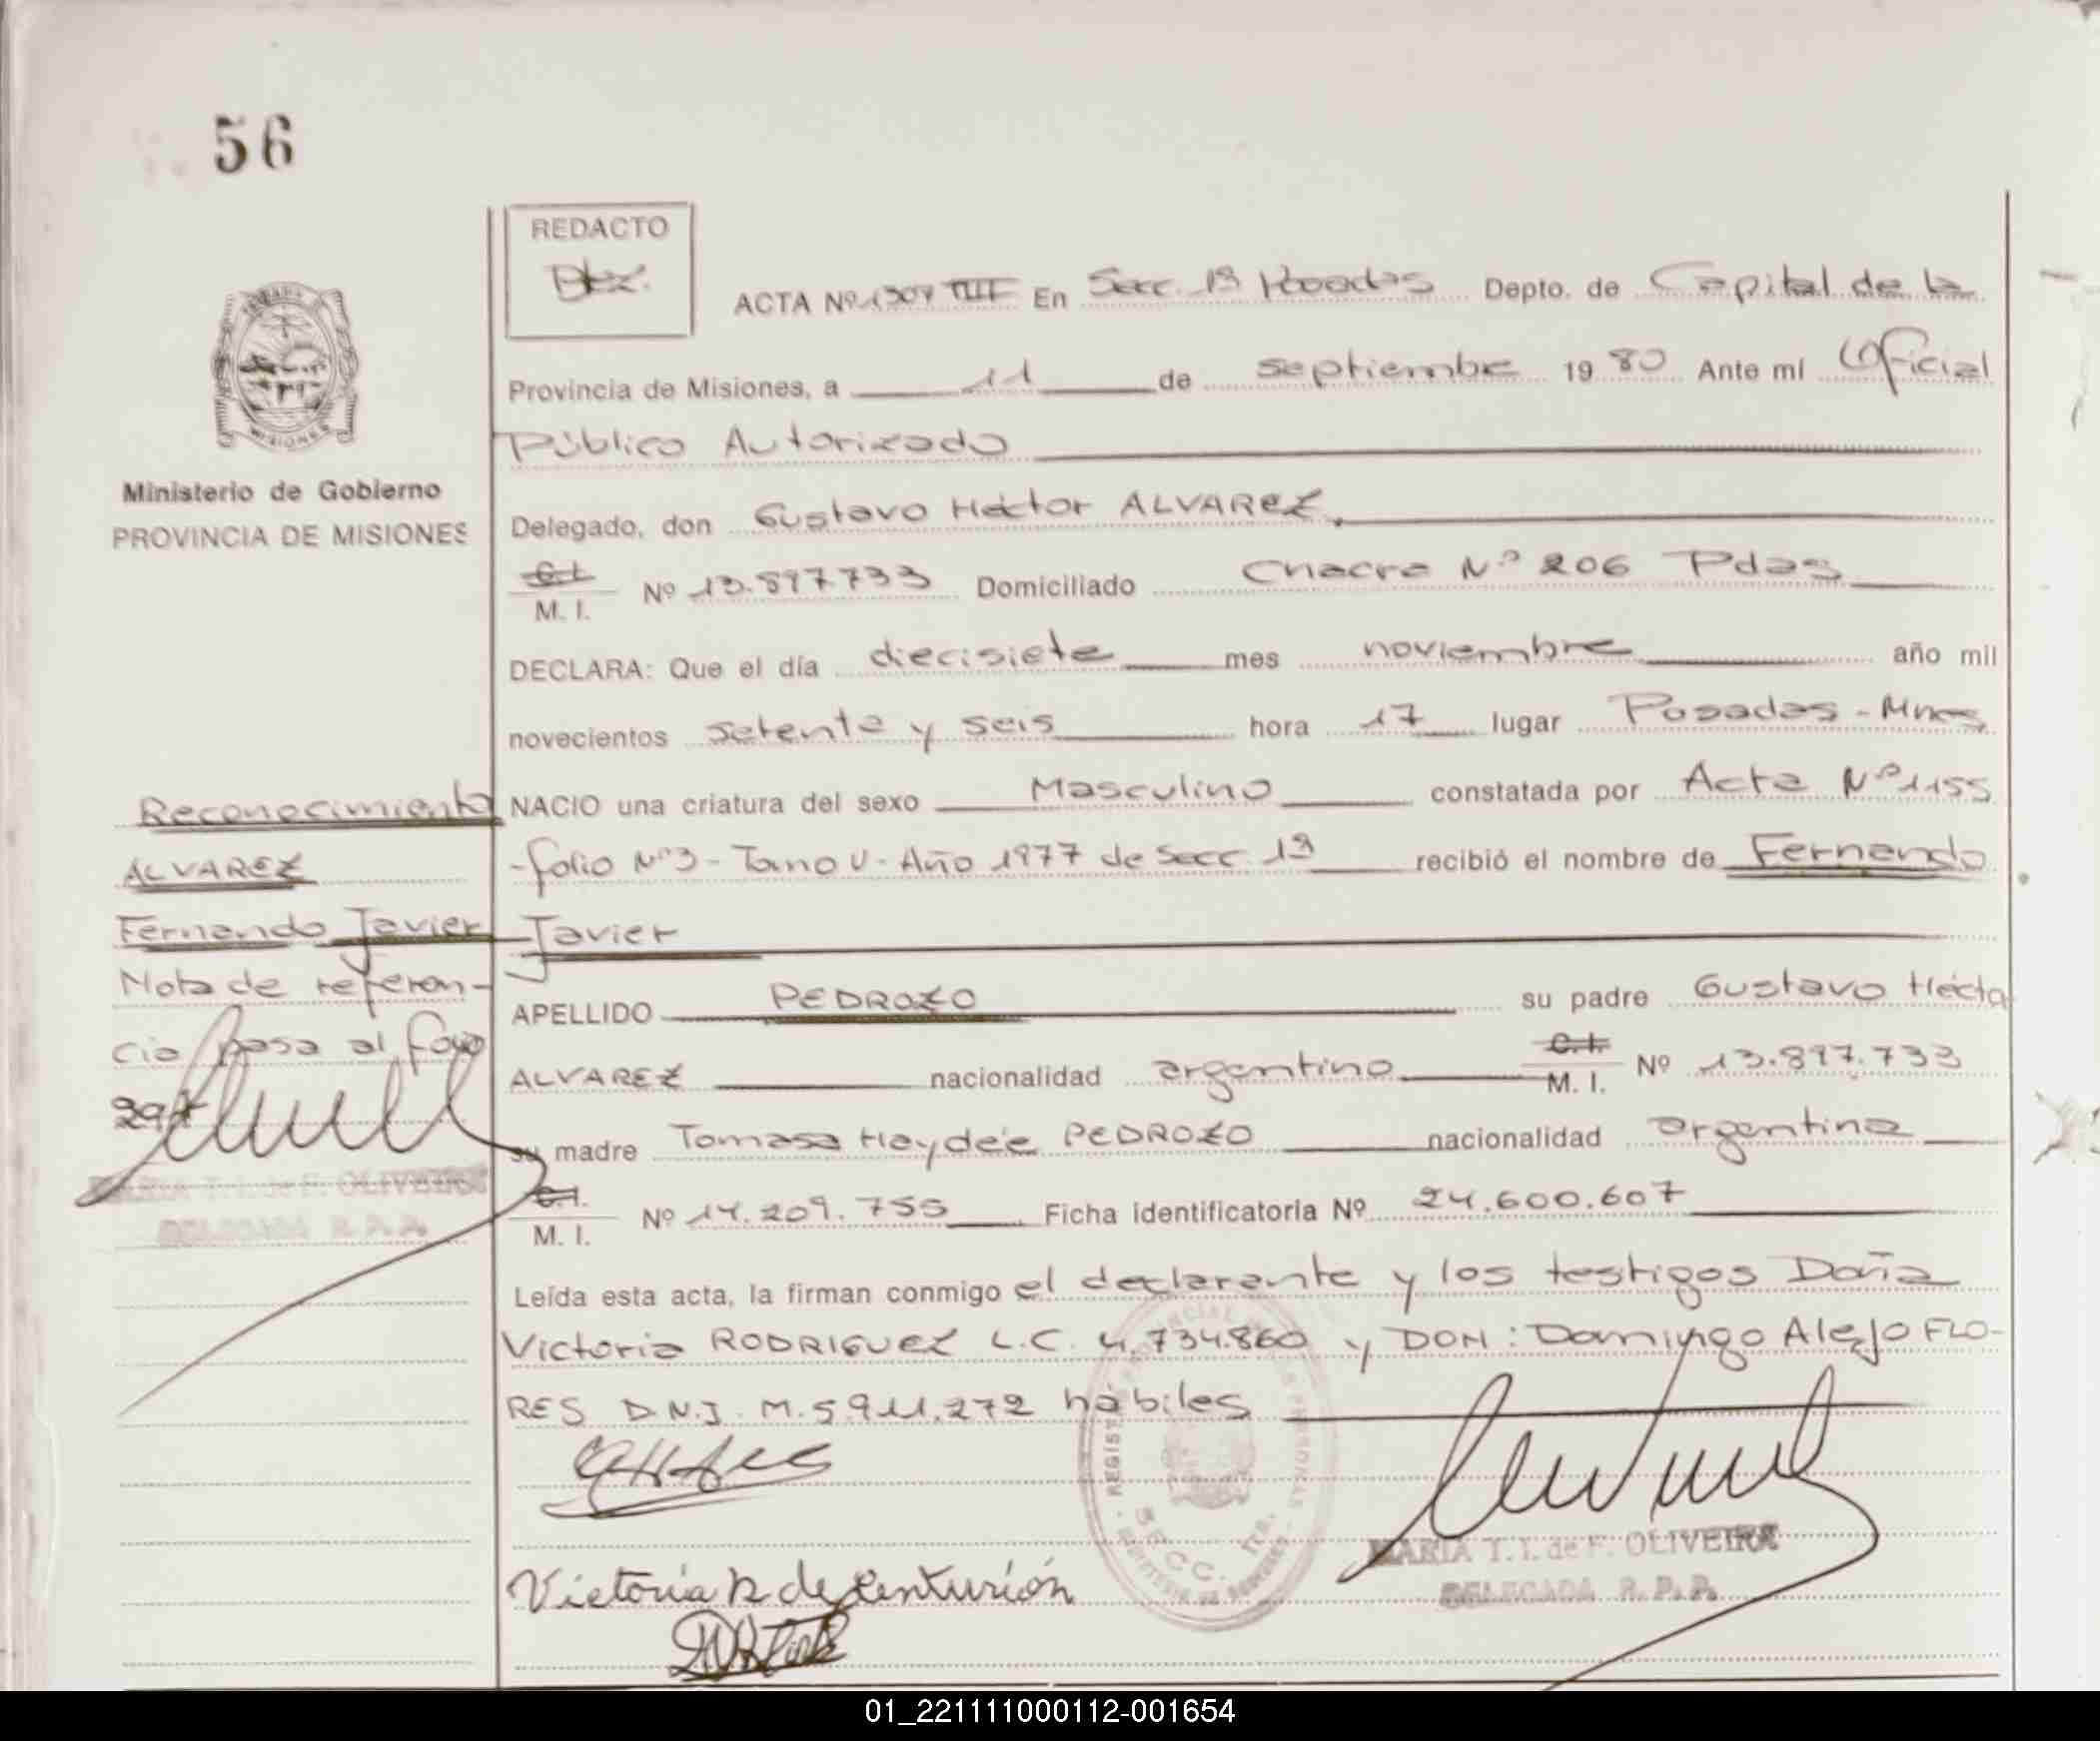 56
REDACTO
ACTA Nº 1309 TIII En Secc. 1ª Posadas Depto. de Capital de la
Provincia de Misiones, a 11 de septiembre 1980 Ante mí Oficial
Público Autorizado
Ministerio de Gobierno
PROVINCIA DE MISIONES
Delegado, don Gustavo Héctor ALVAREZ,
C.I.
M. I. Nº 13.897.733 Domiciliado Chacra Nº 206 Pdas
DECLARA: Que el día diecisiete mes noviembre año mil
novecientos setenta y seis hora 17 lugar Posadas - Mnes
NACIO una criatura del sexo Masculino constatada por Acta Nº 1155
- folio Nº 3 - Tomo V - Año 1977 de Secc. 1ª recibió el nombre de Fernando
Javier
APELLIDO PEDROZO su padre Gustavo Hécto
ALVAREZ nacionalidad argentino C.I. M. I. Nº 13.897.733
su madre Tomasa Haydée PEDROZO nacionalidad argentina
C.I.
M. I. Nº 14.209.755 Ficha identificatoria Nº 24.600.607
Leída esta acta, la firman conmigo el declarante y los testigos Doña
Victoria RODRIGUEZ L.C. 4.734.860 y DON: Domingo Alejo FLO-
RES D.N.I. M. 5.911.272 hábiles
Reconocimiento
ALVAREZ
Fernando Javier
Nota de referen-
cia pasa al folio
297
MARIA T. I. de F. OLIVEIRA
DELEGADA R. P. P.
Victoria R de Centurión
MARIA T. I. de F. OLIVEIRA
DELEGADA R. P. P.
SECC. 1ra.
01_221111000112-001654